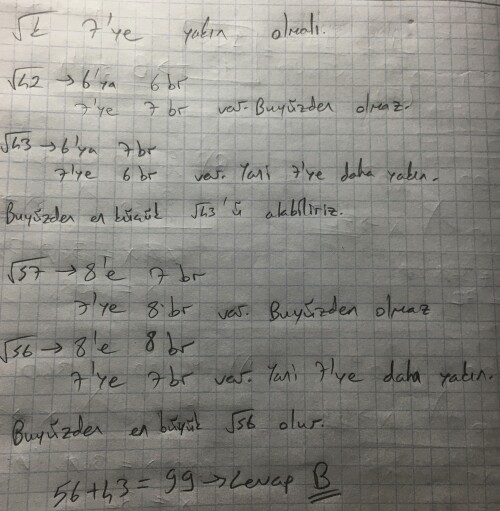 √k 7'ye yakın olmalı.
√42 → 6'ya 6 br
7'ye 7 br var. Buyüzden olmaz.
√43 → 6'ya 7 br
7'ye 6 br var. Yani 7'ye daha yakın.
Buyüzden en küçük √43'ü alabiliriz.
√57 → 8'e 7 br
7'ye 8 br var. Buyüzden olmaz
√56 → 8'e 8 br
7'ye 7 br var. Yani 7'ye daha yakın.
Buyüzden en büyük √56 olur.
56+43 = 99 → Cevap B